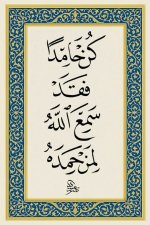 كُنْ حَامِدًا
فَقَدْ
سَمِعَ اللَّهُ
لِمَنْ حَمِدَهُ